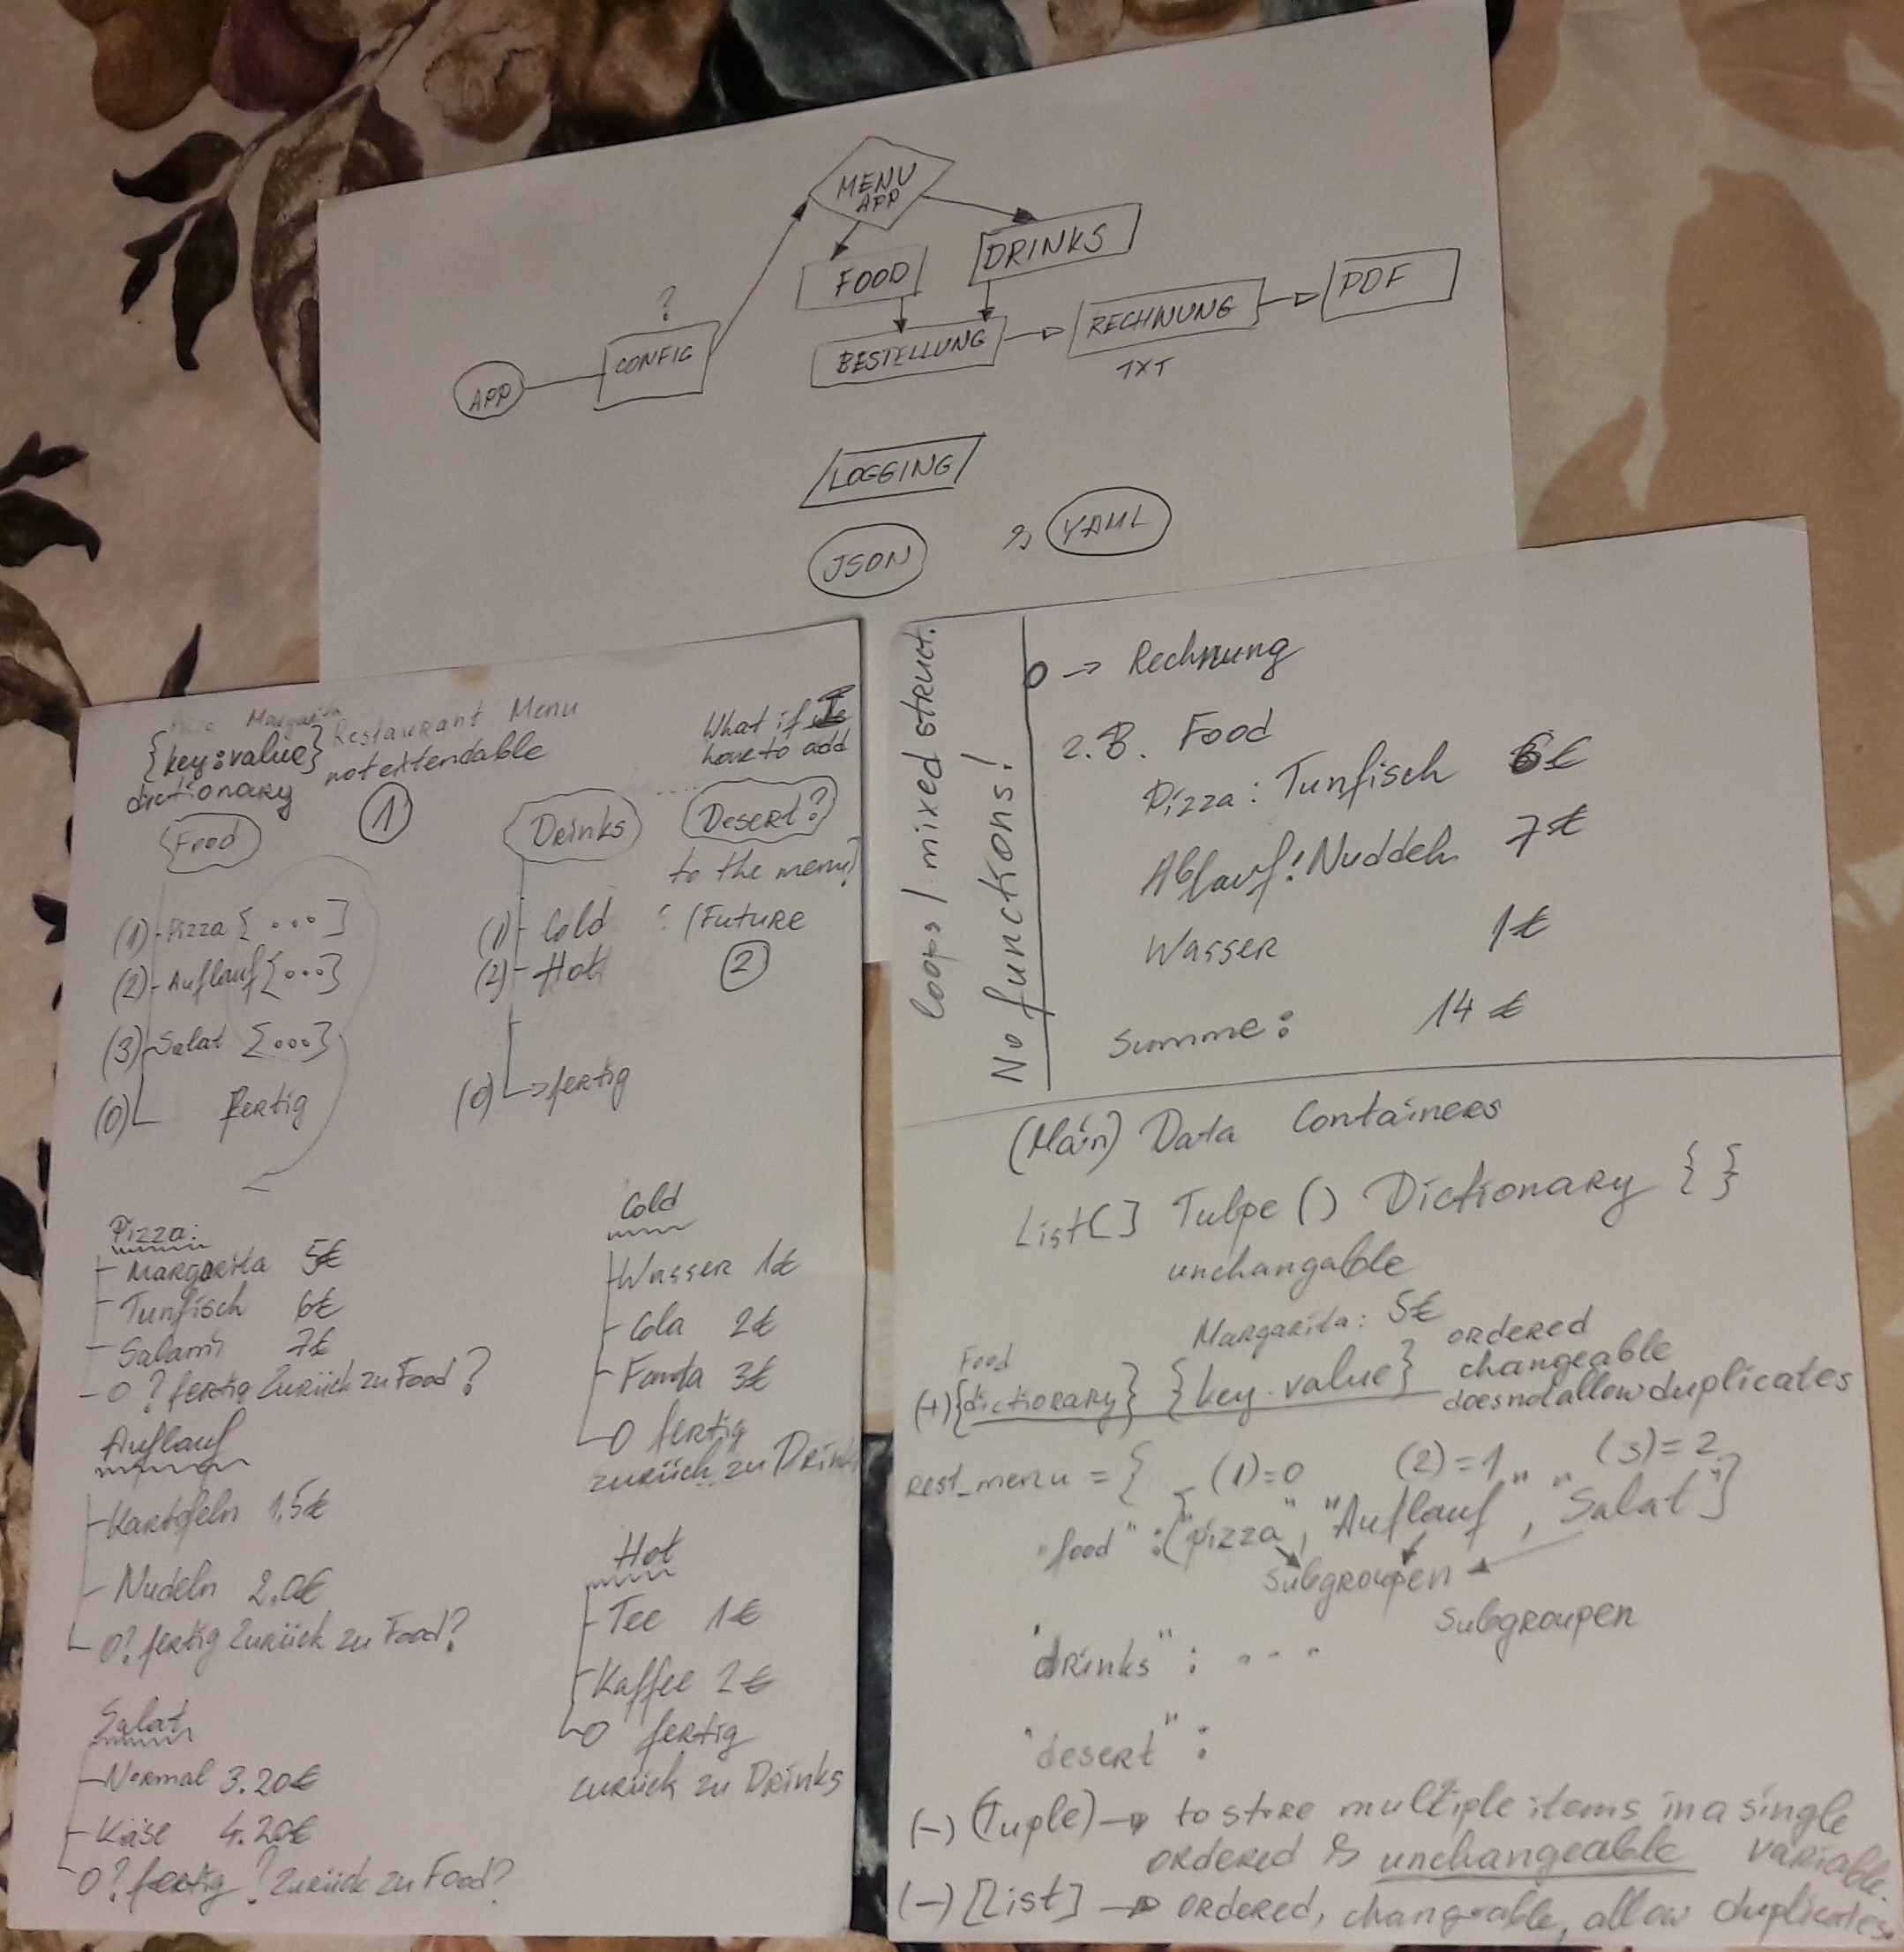 MENU
APP
FOOD
DRINKS
?
APP
CONFIG
BESTELLUNG
RECHNUNG
PDF
TXT
LOGGING
JSON
YAML
Margarita
Restaurant Menu
{key:value}
not extendable
dictionary
1
What if I
have to add
Food
Drinks
Desert?
to the menu?
(1) Pizza {...}
(2) Auflauf {...}
(3) Salat {...}
(0) Fertig
(1) Cold
(2) Hot
(0) → fertig
(Future
2
Pizza:
Margarita 5€
Tunfisch 6€
Salami 7€
0 ? fertig Zurück zu Food?
Auflauf
Kartofeln 1,5€
Nudeln 2.0€
0? fertig Zurück zu Food?
Salat
Normal 3.20€
Käse 4.20€
0? fertig? Zurück zu Food?
Cold
Wasser 1€
Cola 2€
Fanta 3€
0 fertig
zurück zu Drinks
Hot
Tee 1€
Kaffee 2€
0 fertig
zurück zu Drinks
loops / mixed struct.
No functions!
0 → Rechnung
z.B. Food
Pizza: Tunfisch 6€
Ablauf! Nuddeln 7€
Wasser 1€
Summe: 14€
(Main) Data Containers
List[] Tulpe () Dictionary { }
unchangable
Margarita: 5€
Food
(+) {dictionary} {key.value}
ordered
changeable
does not allow duplicates
rest_menu = {
(1)=0 (2)=1 (3)=2
"food" : {"pizza", "Auflauf", "Salat"}
Subgroupen
Subgroupen
"drinks" : ...
"desert" :
(-) (Tuple) → to store multiple items in a single
variable.
ordered & unchangeable
(-) [List] → ordered, changeable, allow duplicates.